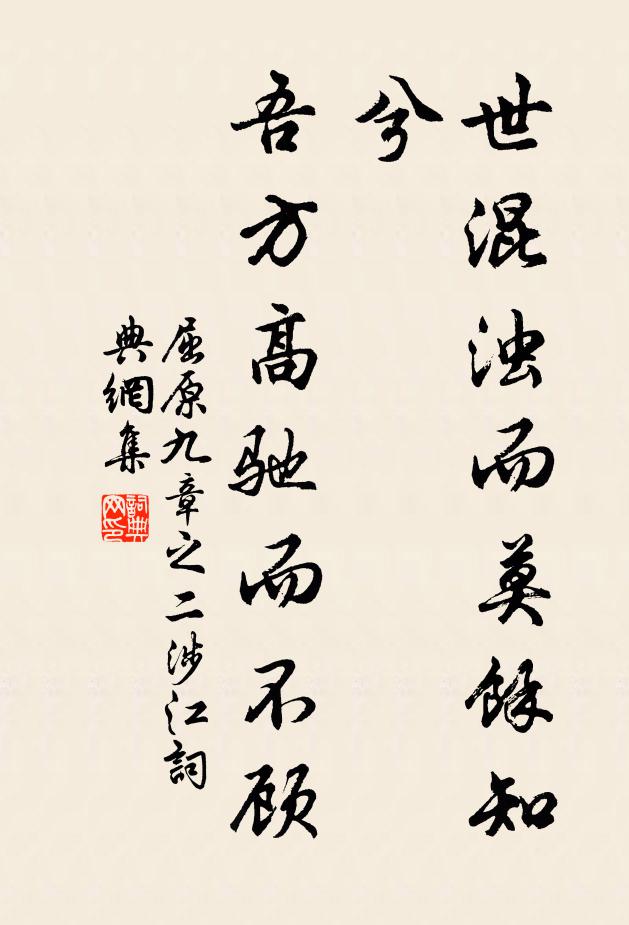 世混浊而莫餘知
兮
吾方高驰而不顾
屈原九章之二涉江詞
典網集
詞典
网印